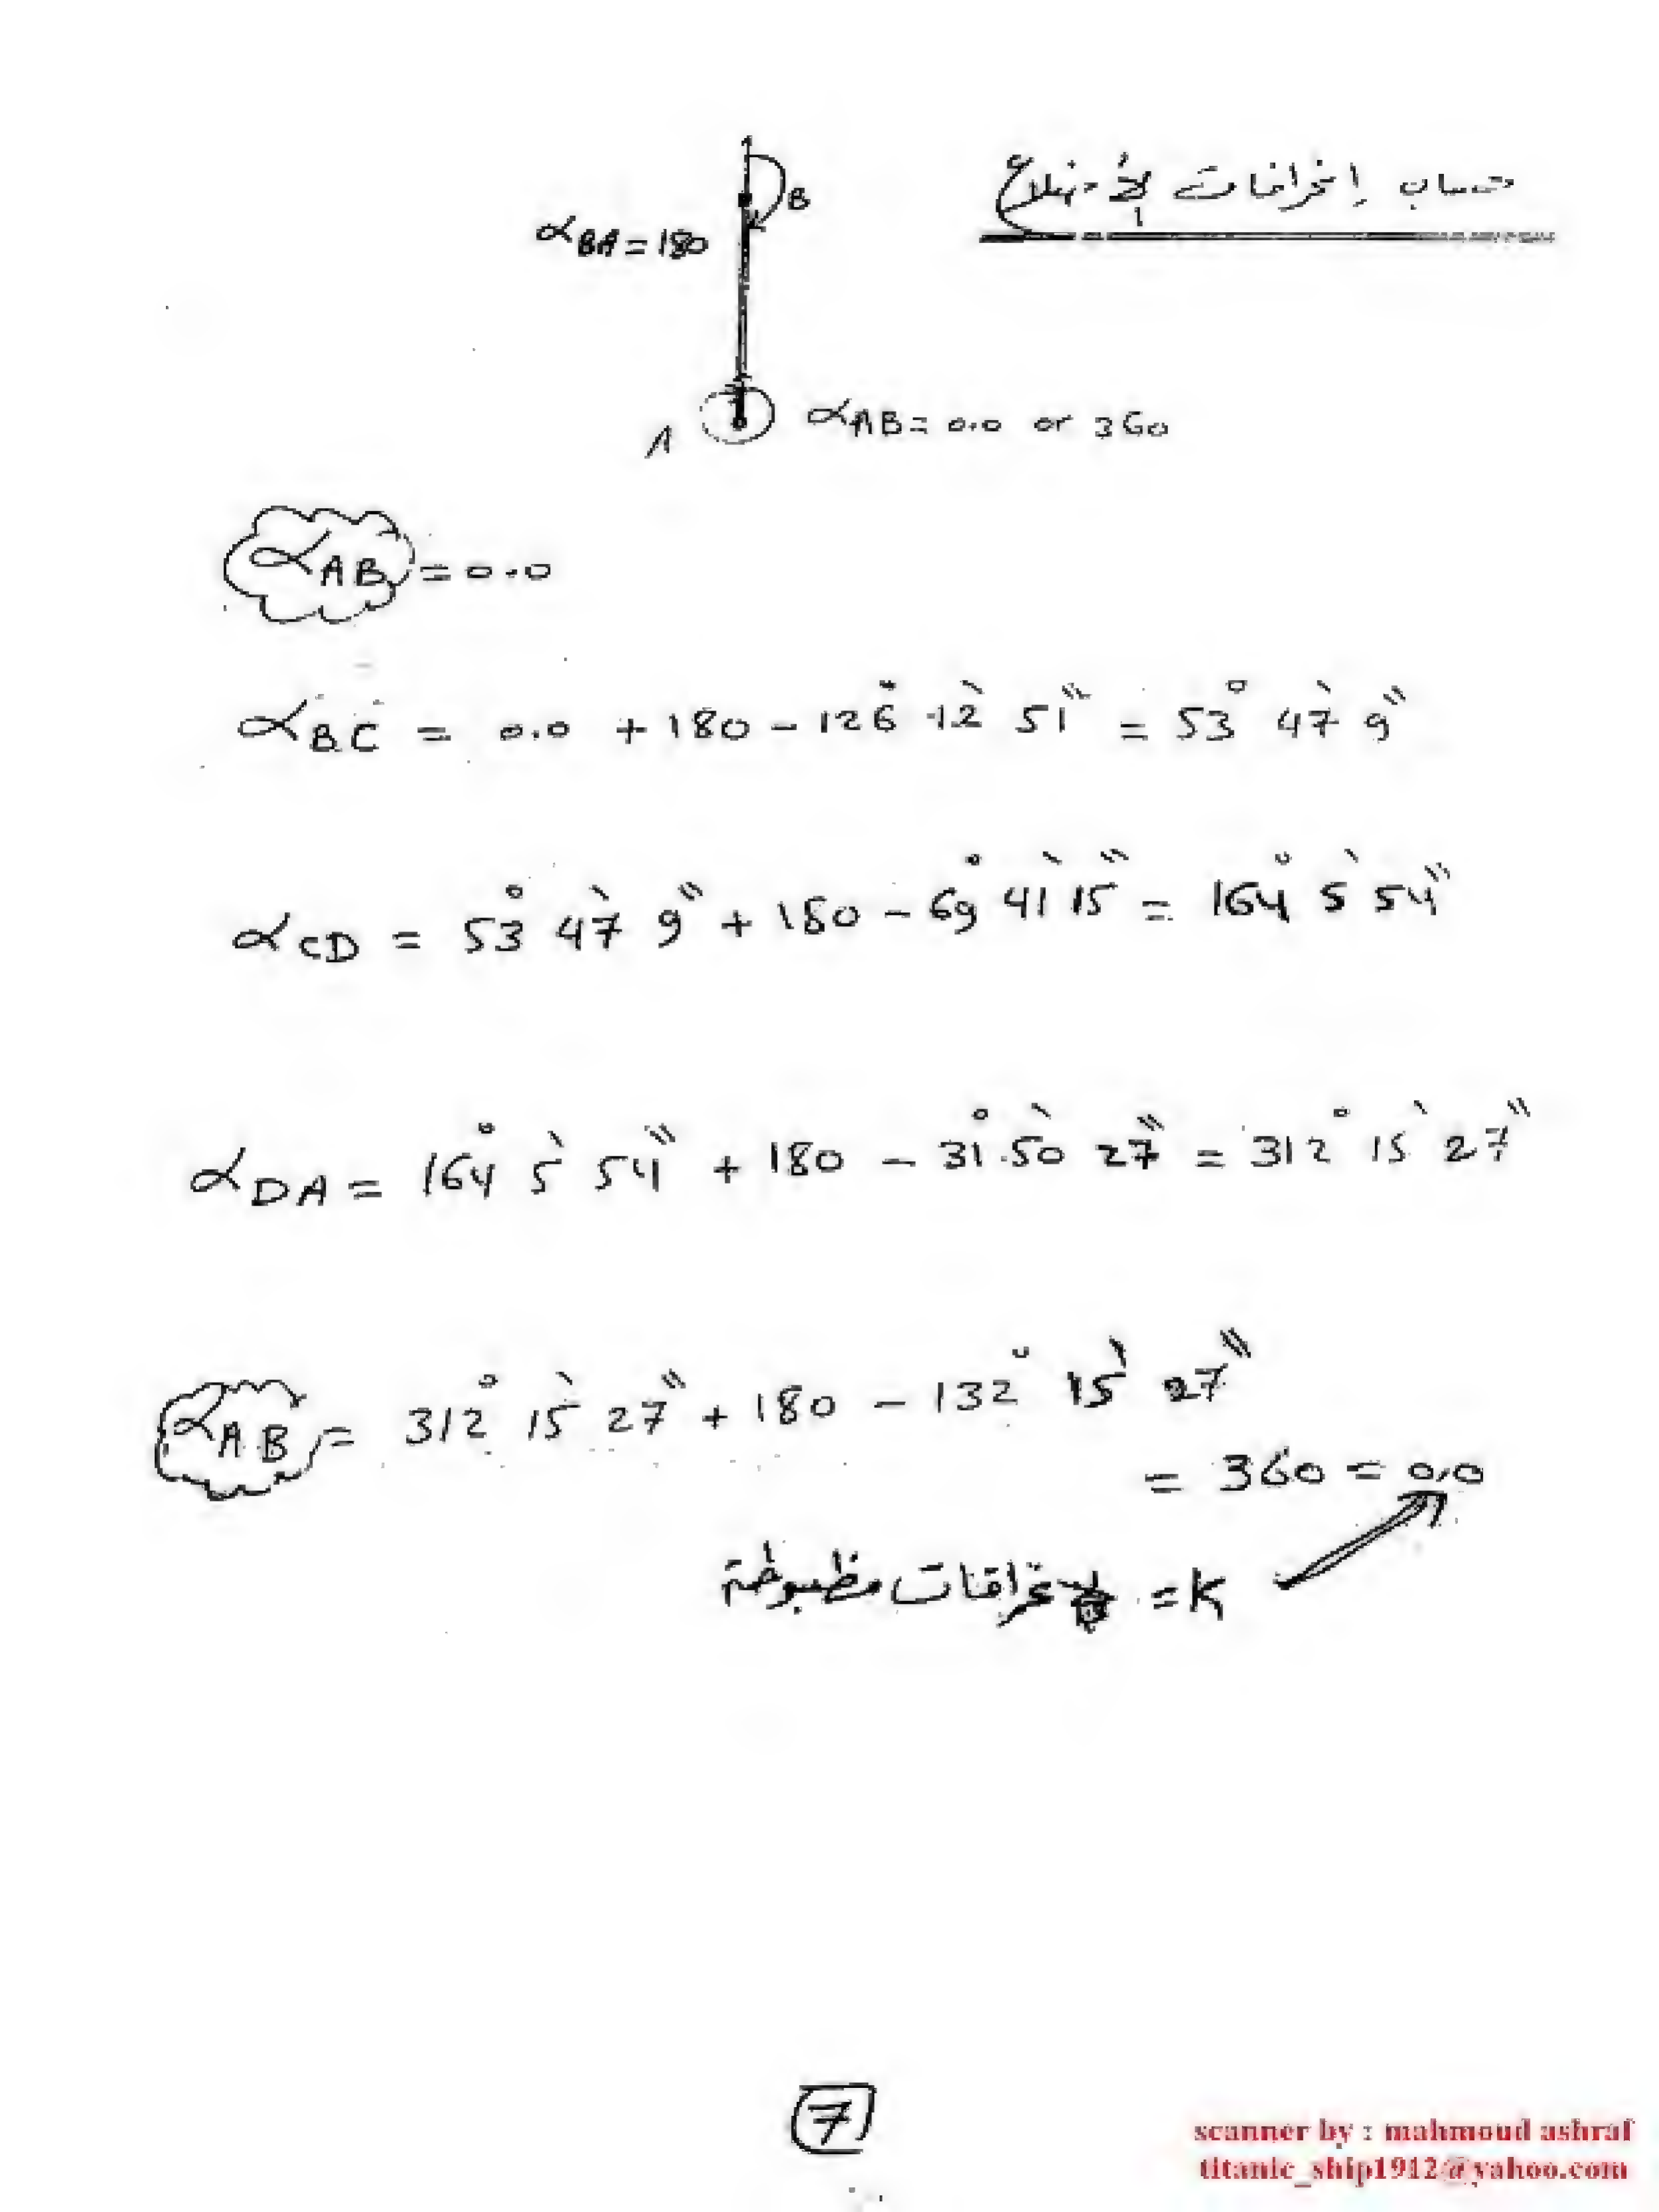 حساب إنحرافات الأضلاع
B
αBA = 180
A
αAB = 0.0 or 360
αAB = 0.0
αBC = 0.0 + 180 - 126° 12' 51" = 53° 47' 9"
αCD = 53° 47' 9" + 180 - 69° 41' 15" = 164° 5' 54"
αDA = 164° 5' 54" + 180 - 31° 50' 27" = 312° 15' 27"
αAB = 312° 15' 27" + 180 - 132° 15' 27"
= 360 = 0.0
مظبوطة = K
7
scanner by : mahmoud ashraf
titanic_ship1912@yahoo.com